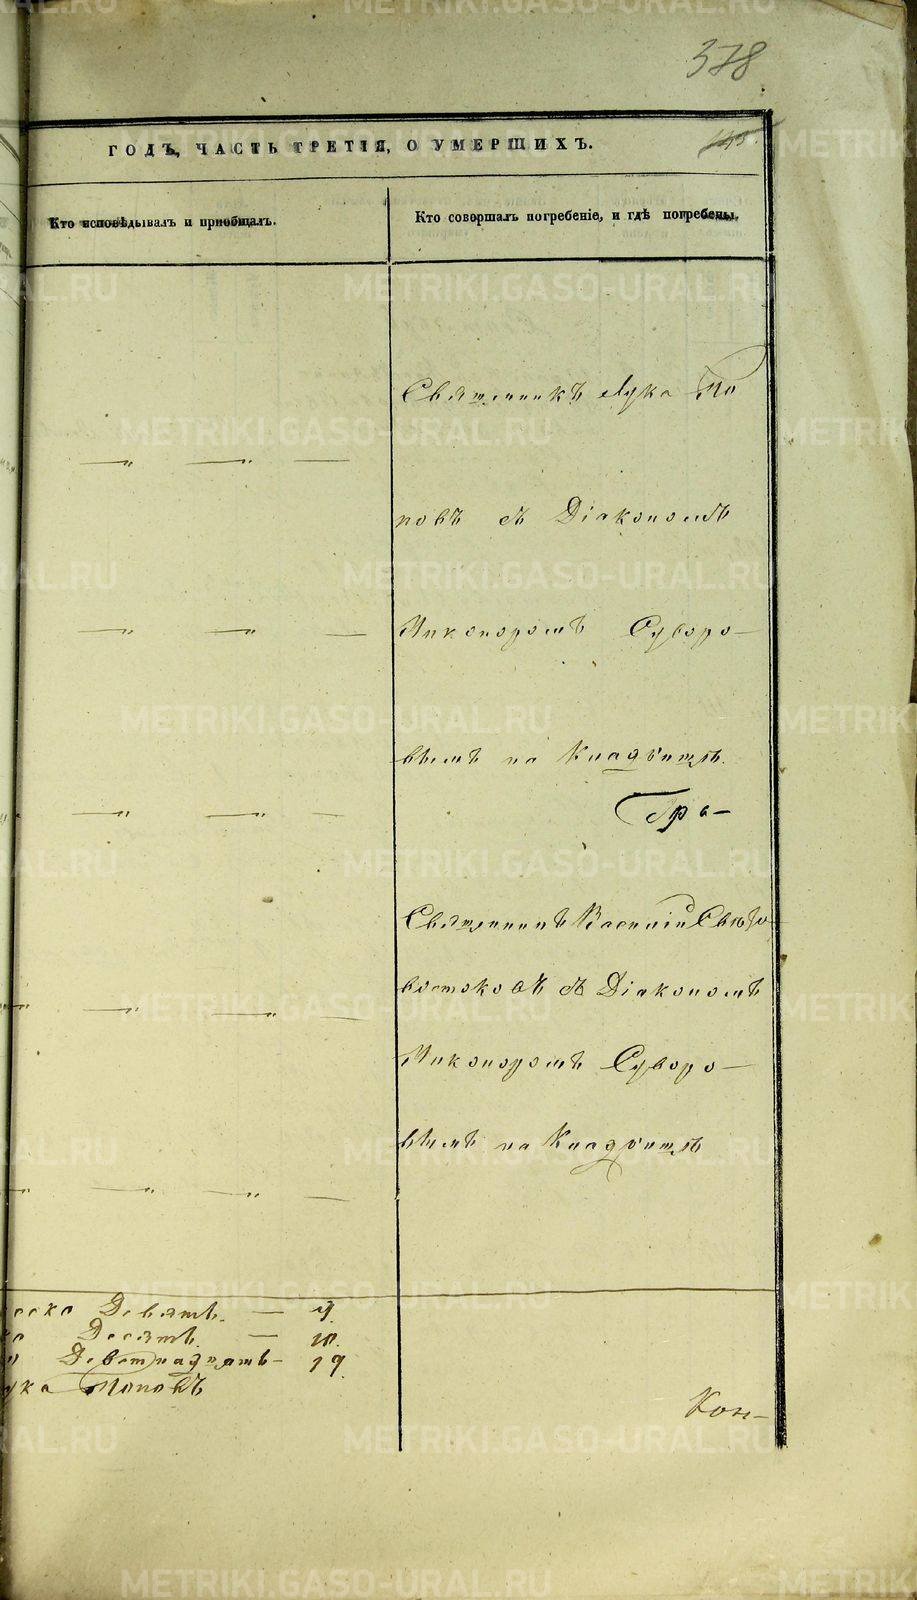 378
145
ГОДЪ, ЧАСТЬ ТРЕТІЯ, О УМЕРШИХЪ.
Кто исповѣдывалъ и пріобщалъ.
Кто совершалъ погребеніе, и гдѣ погребены.
Священникъ Лука По
повъ съ Діакономъ
Никоноромъ Суворо-
вымъ на Кладбищѣ.
Гра-
Священникъ Василій Свѣто
востоковъ съ Діакономъ
Никоноромъ Суворо-
вымъ на Кладбищѣ
Девять. — 9.
Десять. — 10.
Девятнадцать - 19.
ука Поповъ
Кон-
METRIKI.GASO-URAL.RU